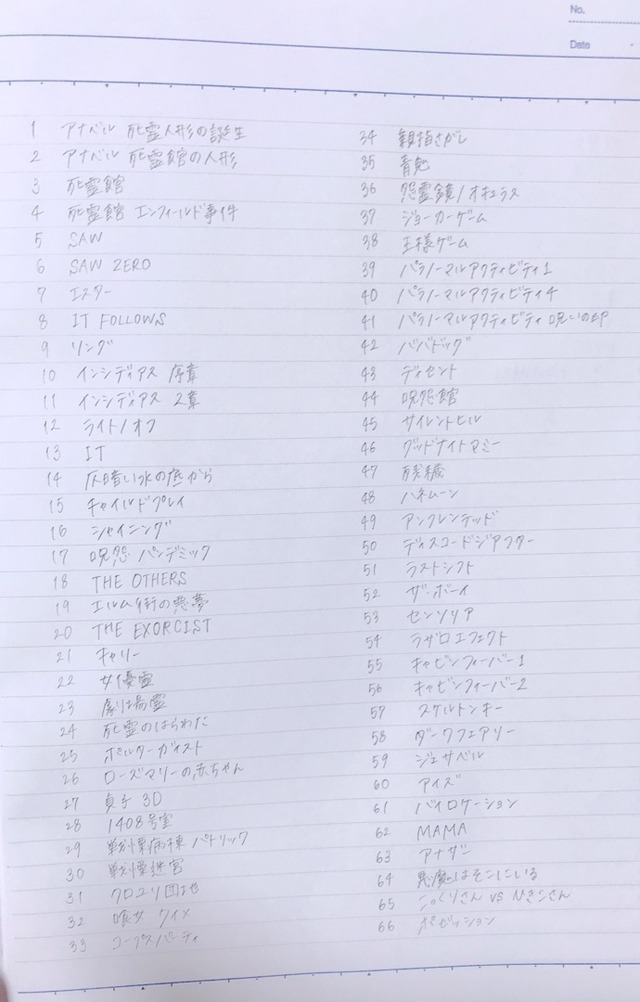 No.
Date
1 アナベル 死霊人形の誕生
2 アナベル 死霊館の人形
3 死霊館
4 死霊館 エンフィールド事件
5 SAW
6 SAW ZERO
7 エスター
8 IT FOLLOWS
9 リング
10 インシディアス 序章
11 インシディアス 2章
12 ライト/オフ
13 IT
14 仄暗い水の底から
15 チャイルドプレイ
16 シャイニング
17 呪怨 パンデミック
18 THE OTHERS
19 エルム街の悪夢
20 THE EXORCIST
21 キャリー
22 女優霊
23 劇場霊
24 死霊のはらわた
25 ポルターガイスト
26 ローズマリーの赤ちゃん
27 貞子 3D
28 1408号室
29 戦慄病棟 パトリック
30 戦慄迷宮
31 クロユリ団地
32 喰女 クイメ
33 コープスパーティ
34 親指さがし
35 青鬼
36 怨霊鏡/オキュラス
37 ジョーカーゲーム
38 王様ゲーム
39 パラノーマルアクティビティ1
40 パラノーマルアクティビティ4
41 パラノーマルアクティビティ 呪いの印
42 ババドッグ
43 ディセント
44 呪怨館
45 サイレントヒル
46 グッドナイトマミー
47
48 ハネムーン
49 アンフレンデッド
50 ディスコードジアフター
51 ラストシフト
52 ザ・ボーイ
53 センソリア
54 ラザロエフェクト
55 キャビンフィーバー1
56 キャビンフィーバー2
57 スケルトンキー
58 ダークフェアリー
59 ジェサベル
60 アイズ
61 バイロケーション
62 MAMA
63 アナザー
64 悪魔はそこにいる
65 こっくりさん VS ひきこさん
66 ポゼッション